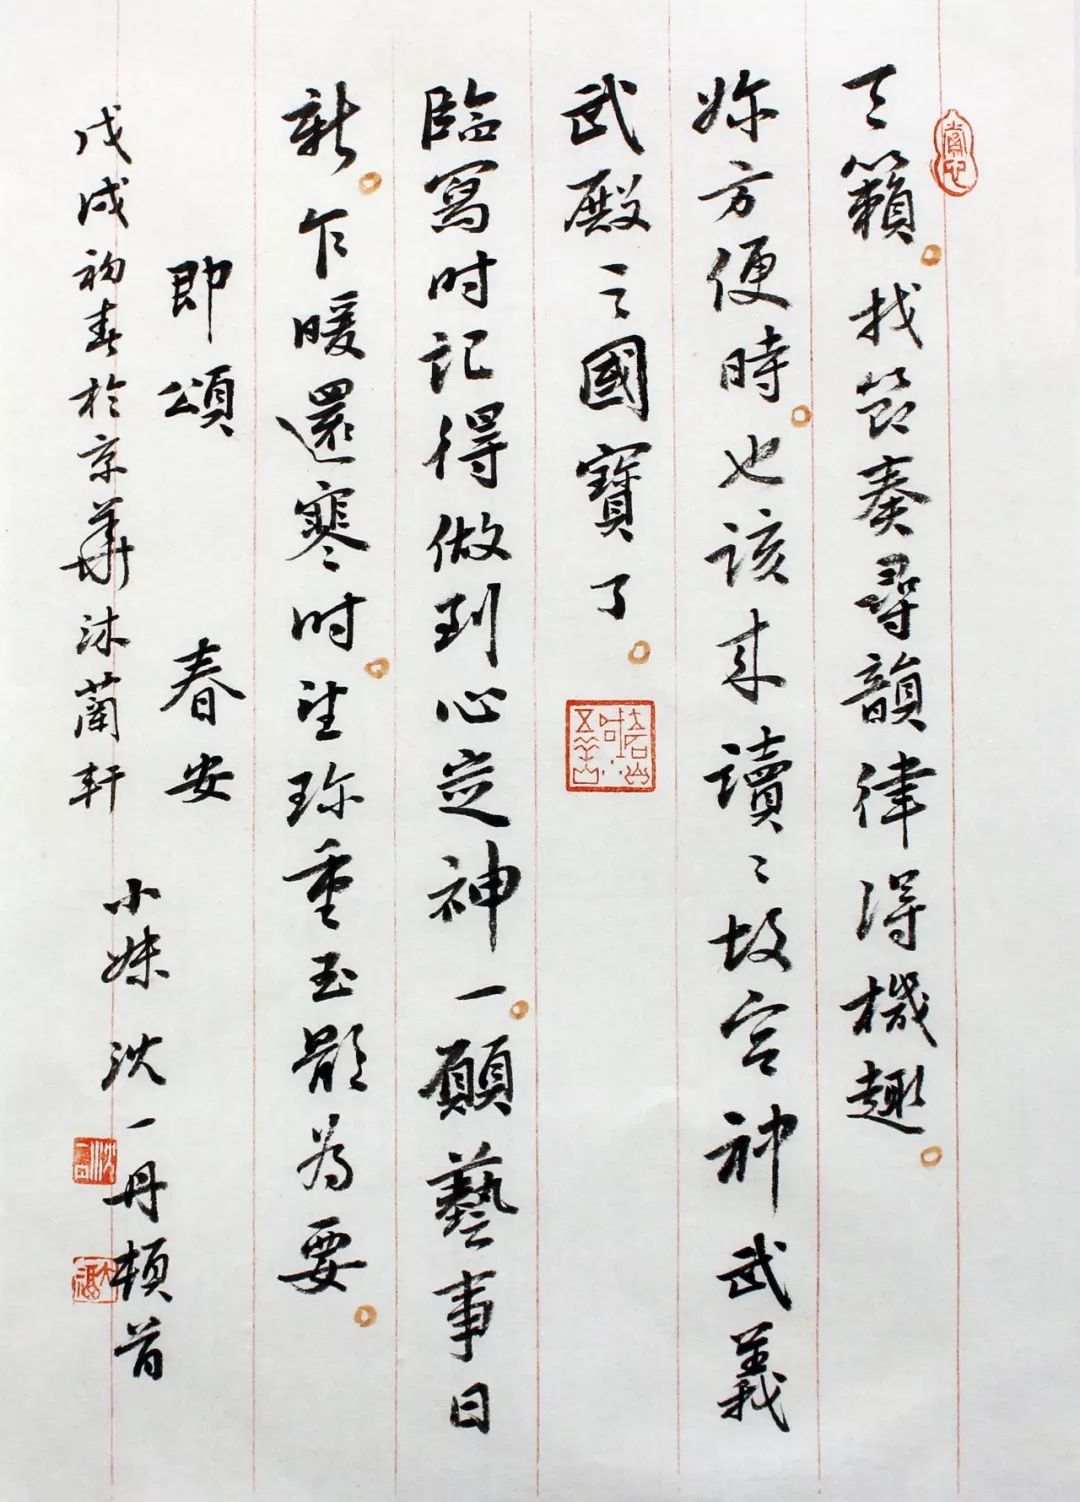 天籟。找節奏尋韻律得機趣。
妳方便時。也該来讀讀故宫神武義
武殿之國寶了。
臨寫时記得做到心定神一。願藝事日
新。乍暖還寒时。望珍重玉體為要。
即頌
春安
戊戌初春於京華沐蘭軒
小妹沈一丹頓首